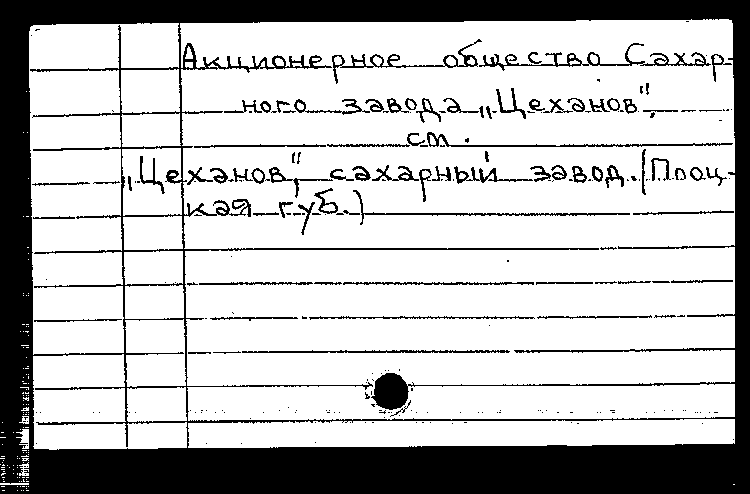 Акционерное общество Сахар-
ного завода „Цеханов",
см.
„Цеханов", сахарный завод. (Плоц-
кая губ.)